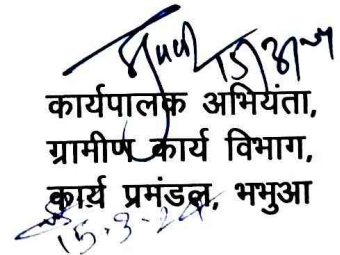 कार्यपालक अभियंता,
ग्रामीण कार्य विभाग,
कार्य प्रमंडल, भभुआ
15.3.24